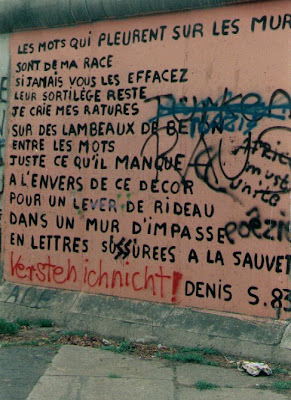 LES MOTS QUI PLEURENT SUR LES MUR
SONT DE MA RACE
SI JAMAIS VOUS LES EFFACEZ
LEUR SORTILÉGE RESTE
JE CRIE MES RATURES
SUR DES LAMBEAUX DE BETON
ENTRE LES MOTS
JUSTE CE QU'IL MANQUE
A L'ENVERS DE CE DÉCOR
POUR UN LEVER DE RIDEAU
DANS UN MUR D'IMPASSE
EN LETTRES SUSSURÉES A LA SAUVET
Versteh ich nicht!
DENIS S. 83
Africa
must
unite